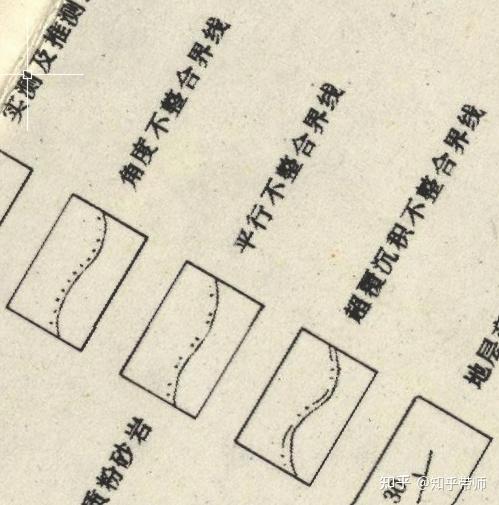 实测及推测
角度不整合界线
平行不整合界线
超覆沉积不整合界线
地层
质粉砂岩
30
知乎 @知乎带师